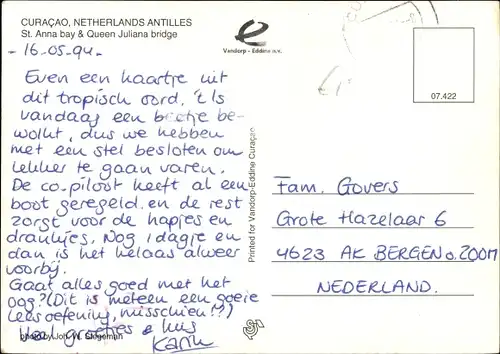 CURAÇAO, NETHERLANDS ANTILLES
St. Anna bay & Queen Juliana bridge
- 16-05-94 -
Even een kaartje uit
dit tropisch oord. 't Is
vandaag een beetje be-
wolkt, dus we hebben
met een stel besloten om
lekker te gaan varen.
De co-piloot heeft al een
boot geregeld en de rest
zorgt voor de hapjes en
drankjes. Nog 1 dagje en
dan is het helaas alweer
voorbij.
Gaat alles goed met het
oog? (Dit is meteen een goeie
leesoefening, misschien!?)
Veel groetjes & kus
Karin
photo by Joh. W. Stegeman
Vandorp - Eddine n.v.
Printed for Vandorp-Eddine Curaçao
07.422
Fam. Govers
Grote Hazelaar 6
4623 AK BERGEN o. ZOOM
NEDERLAND.